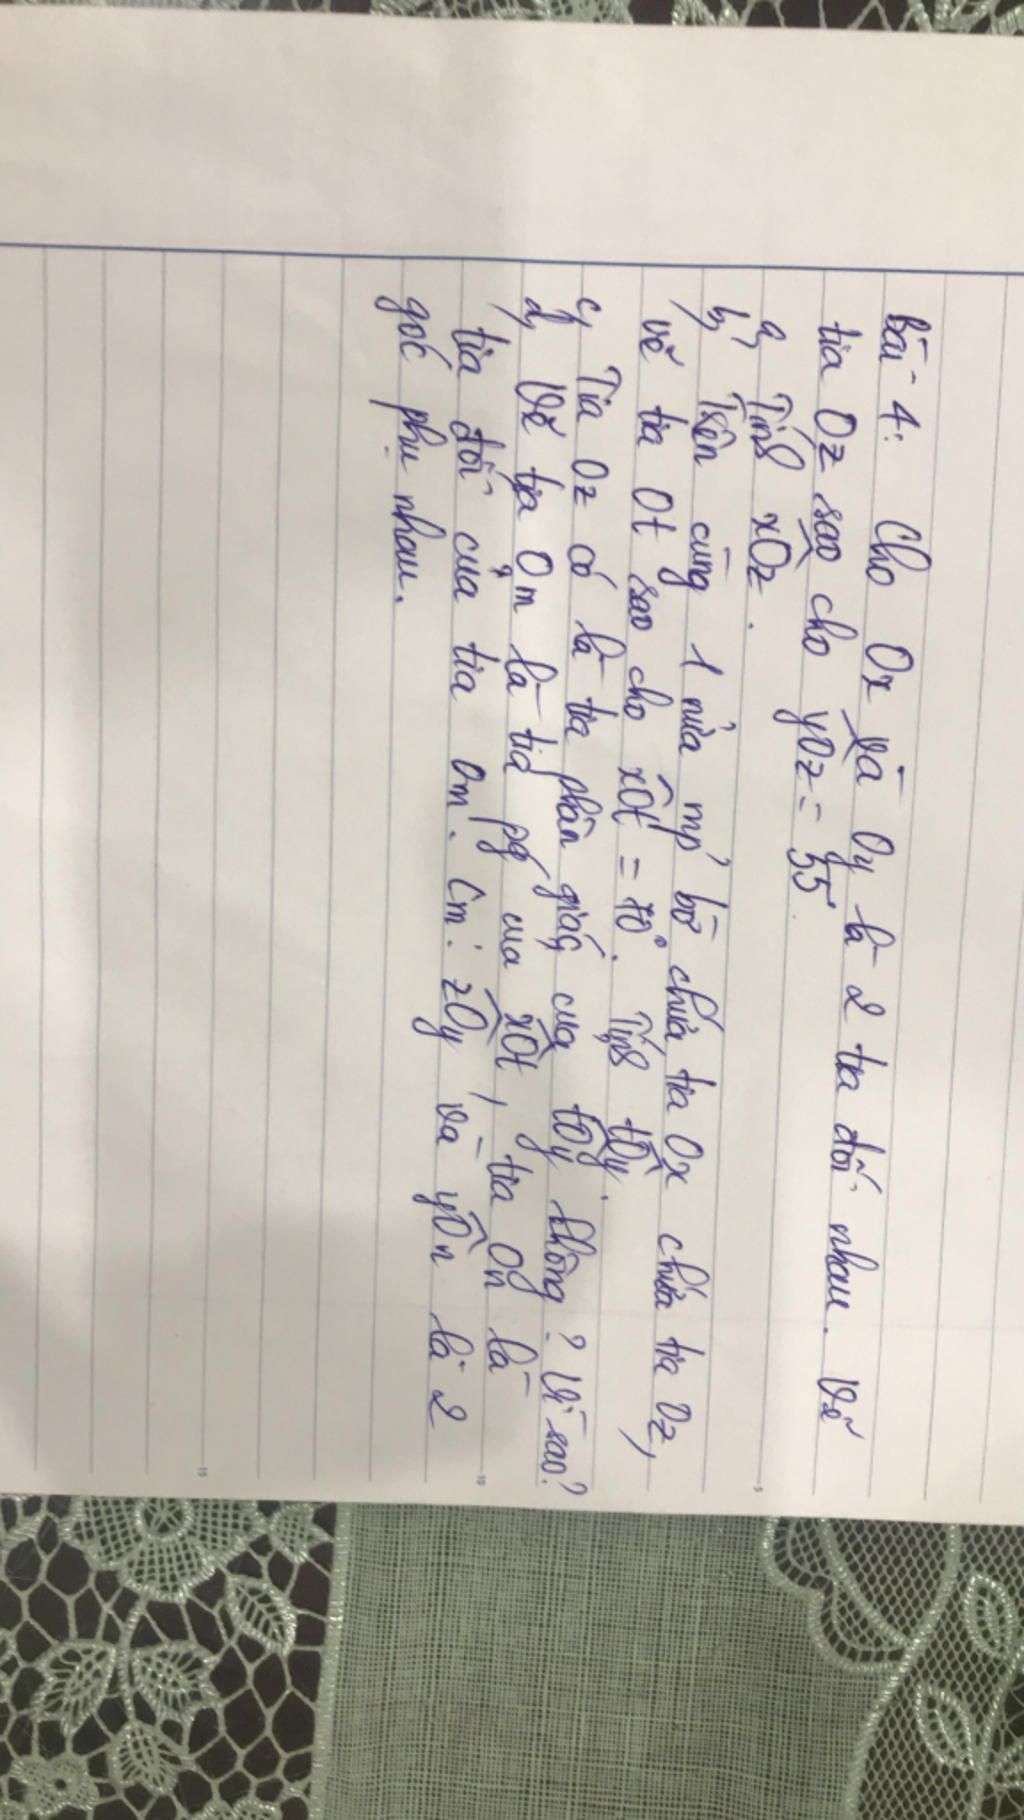 Bài 4: Cho Ox và Oy là 2 tia đối nhau. Vẽ
tia Oz sao cho yOz = 55°
a, Tính xOz.
b, Trên cùng 1 nửa mp bờ chứa tia Ox chứa tia Oz,
vẽ tia Ot sao cho xOt = 70°. Tính tOy.
c, Tia Oz có là tia phân giác của tOy không? Vì sao?
d, Vẽ tia Om là tia pg của xOt, tia On là
tia đối của tia Om. Cm: zOy và yOn là 2
góc phụ nhau.
5
10
15